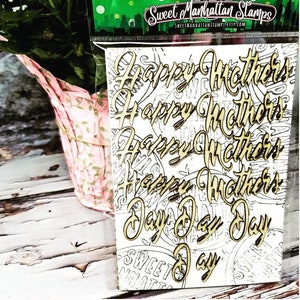 Sweet Manhattan Stamps
SWEETMANHATTANSTAMPS.ETSY.COM
Happy Mothers
Happy Mothers
Happy Mothers
Happy Mothers
Day Day Day
Day
SWEET
MANHATTAN